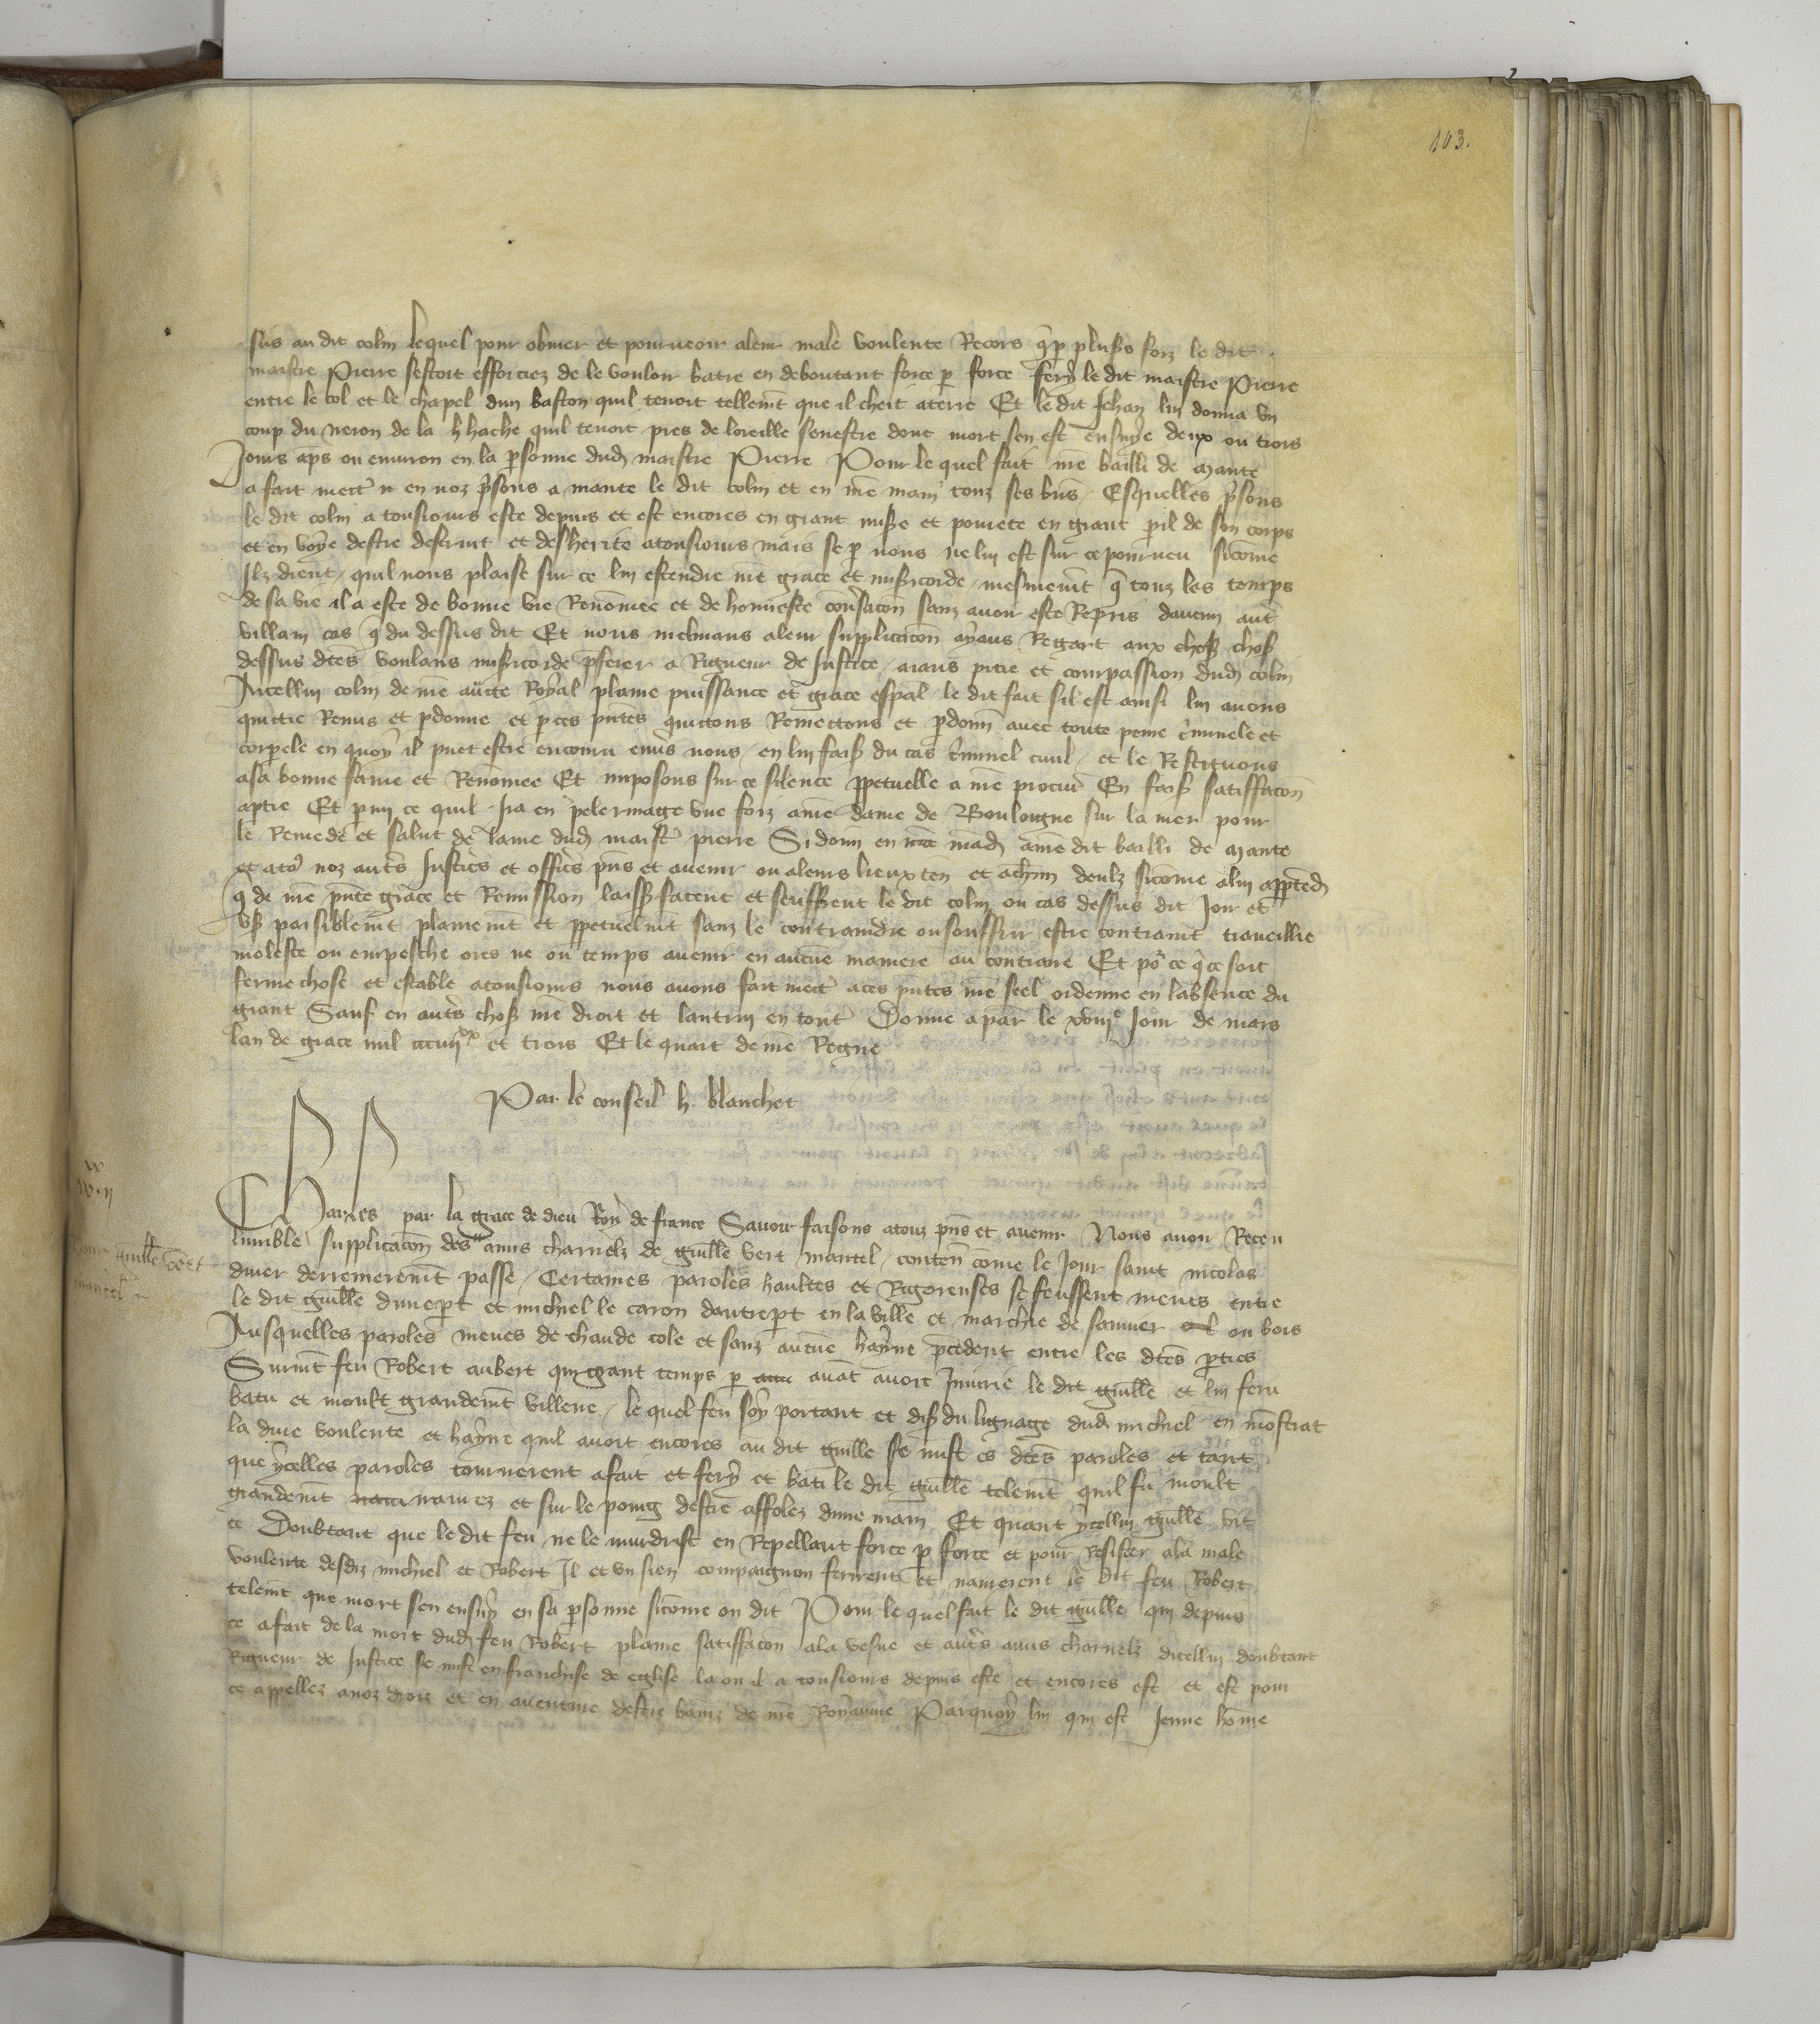 103.
sus au dit colin lequel pour obuier et pourueoir a leur male voulente Recors q̃ p plus̃s foiz le dit
maistre Pierre sestoit efforciez de le vouloir batre en deboutant force p force fery le dit maistre Pierre
entre le col et le chapel dun baston quil tenoit tellem̃t que il cheit a terre Et le dit Jehan lui donna vn
coup du neron de la h hache quil tenoit pres de loreille senestre dont mort sen est ensuye deux ou trois
Jours ap̃s ou enuiron en la p̃sonne dud̃ maistre Pierre Pour le quel fait nr̃e bailli de Mante
a fait mectr̃ en noz p̃sons a mante le dit colin et en nr̃e main touz ses biñs Esquelles p̃sons
le dit colin a tousiours este depuis et est encores en grant mis̃e et pourete en grant p̃il de son corps
et en voye destre desfruit et desherite a tousiours mais se p nous ne lui est sur ce pourueu sicõme
Ilz dient / quil nous plaise sur ce lui estendre nr̃e grace et mis̃icorde / mesmem̃t q̃ touz les temps
de sa vie il a este de bonne vie Renõmee et de honneste conũsacõn sanz auoir este Repris daucun autr̃
villain cas q̃ du dessus dit Et nous inclinans a leur supplicacõn ayans Regart aux chos̃ chos̃
dessus dc̃es voulans mis̃icorde p̃ferer a Rigueur de Justice / aians pitie et compassion dud̃ colin
A icellui colin de nr̃e auc̃te Royal plaine puissance et grace esp̃al le dit fait sil est ainsi lui auons
quictie Remis et p̃donne et p ces pñtes quictons Remectons et p̃donñ auec toute peine c̃minele et
corpele en quoy il puet estre encouru enũs nous / en lui fais̃ du cas c̃minel ciuil / et le Restituons
a sa bonne fame et Renõmee Et imposons sur ce silence p̃petuelle a nr̃e procur̃ En fais̃ satiffacõn
a p̃tie Et p̃ mi ce quil ira en pelerinage vne foiz a nr̃e dame de Boulongne sur la mer pour
le Remede et salut de lame dud̃ maistr̃ pierre Si donñ en mãd̃ a nr̃e dit bailli de Mante
et a toz noz autr̃s Justicr̃s et officr̃s pñs et auenir ou a leurs lieuxteñ et a chũn deulz sicõme a lui app̃tend̃
q̃ de nr̃e pñte grace et Remission laiss̃ facent et seuffrent le dit colin ou cas dessus dit Joir et
vs̃ paisiblem̃t plainem̃t et p̃petuelm̃t sanz le contraindre ou souffrir estre contraint traueillie
moleste ou empesche ores ne ou temps auenir en aucũe maniere au contraire Et po͛ ce q̃ ce soit
ferme chose et estable a tousiours nous auons fait mectr̃ a ces pñtes nr̃e seel ordenne en labsence du
grant Sauf en autr̃s chos̃ nr̃e droit et lautrui en tout Donne a par̃ le xviiie Jour de mars
lan de grace mil ccciiiixx et trois Et le quart de nr̃e Regne
Par le conseil h. blanchet
Charles par la grace de dieu Roy de france Sauoir faisons a touz pñs et auenir Nous auoir Receu
lumble supplicacõn des amis charnelz de guille vert mantel / conteñ cõme le Jour saint nicolas
Pour guille vert
mantel
diuer derrenierem̃t passe / Certaines paroles haultes et Rigoreuses se feussent meues entre
le dit guille dune p̃t et michiel le caron dautre p̃t en la ville et marchie de samer ou bois
Ausquelles paroles meues de chaude cole et sanz aucũe hayne p̃cedent entre les dc̃es p̃ties
Suruĩt feu Robert aubert qui grant temps p auãt auoit Jniurie le dit guille et lui feru
batu et moult grandem̃t villene / le quel feu soy portant et dis̃ du lignage dud̃ michiel en mõstrat
la dure voulente et hayne quil auoit encores au dit guille se mist es dc̃es paroles et tant
que ycelles paroles tournerent a fait et fery et bati le dit guille telem̃t quil fu moult
grandem̃t naurez et sur le poing destre affolez dune main Et quant ycellui guille vit
ce Doubtant que le dit feu ne le murdrist en Repellant force p force et pour Resister a la male
voulente desdiz michiel et Robert Il et vn sien compaignon ferirent et naurerent le dit feu Robert
telem̃t que mort sen ensuy en sa p̃sonne sicõme on dit Pour le quel fait le dit guille qui depuis
ce a fait de la mort dud̃ feu Robert plaine satiffacõn a la vesue et autr̃s amis charnelz dicellui doubtant
Rigueur de Justice se mist en franchise de eglise la ou il a tousiours depuis este et encores est / et est pour
ce appellez a noz droiz et en auenture destre baniz de nr̃e Royaume Par quoy lui qui est Jeune hõme